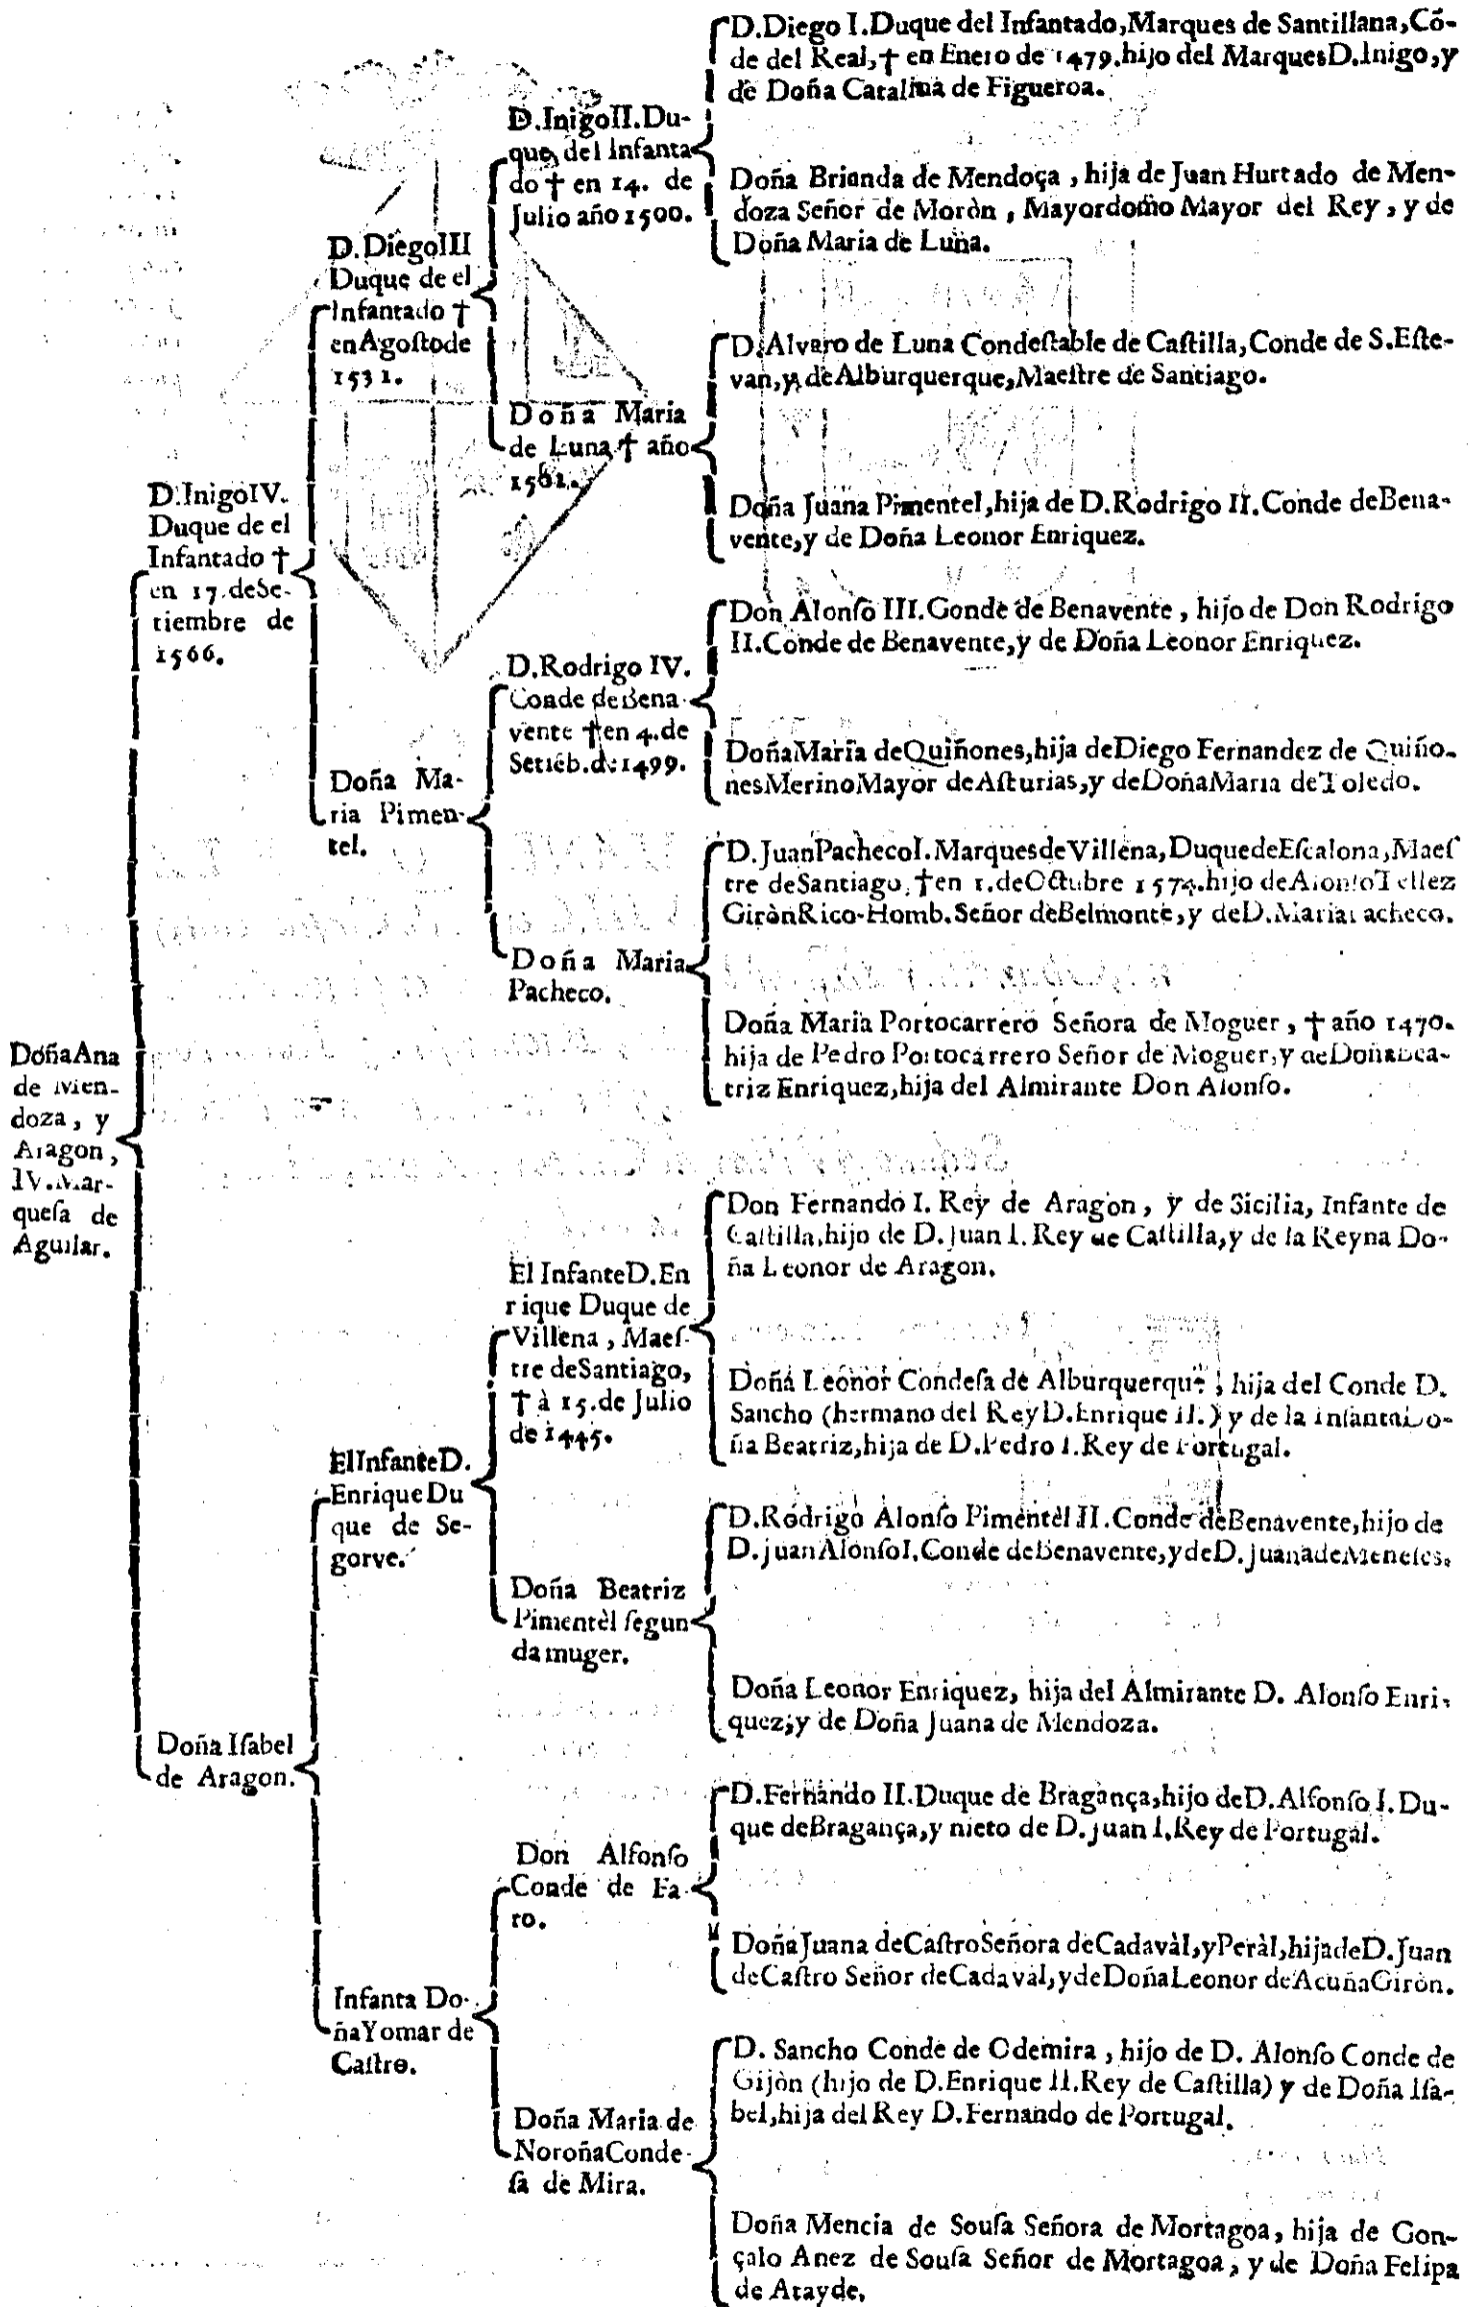 Doña Ana
de Men-
doza, y
Aragon,
IV. Mar-
queſa de
Aguilar.
D. Inigo IV.
Duque de el
Infantado †
en 17. de Se-
tiembre de
1566.
Doña Iſabel
de Aragon.
D. Diego III
Duque de el
Infantado †
en Agoſto de
1531.
Doña Ma-
ria Pimen-
tel.
El Infante D.
Enrique Du
que de Se-
gorve.
Infanta Do-
ña Yomar de
Caſtro.
D. Inigo II. Du-
que, del Infanta
do † en 14. de
Julio año 1500.
Doña Maria
de Luna † año
D. Rodrigo IV.
Conde de Bena-
vente † en 4. de
Setiéb. de 1499.
Doña Maria
Pacheco.
El Infante D. En
rique Duque de
Villena, Maeſ-
tre de Santiago,
† à 15. de Julio
de 1445.
Doña Beatriz
Pimentèl ſegun
da muger.
Don Alfonſo
Conde de Fa-
ro.
Doña Maria de
Noroña Conde-
ſa de Mira.
D. Diego I. Duque del Infantado, Marques de Santillana, Có-
de del Real, † en Enero de 1479. hijo del Marques D. Inigo, y
de Doña Catalina de Figueroa.
Doña Brianda de Mendoça, hija de Juan Hurtado de Men-
doza Señor de Moròn, Mayordomo Mayor del Rey, y de
Doña Maria de Luna.
D. Alvaro de Luna Condeſtable de Caſtilla, Conde de S. Eſte-
van, y de Alburquerque, Maeſtre de Santiago.
Doña Juana Pimentel, hija de D. Rodrigo II. Conde de Bena-
vente, y de Doña Leonor Enriquez.
Don Alonſo III. Conde de Benavente, hijo de Don Rodrigo
II. Conde de Benavente, y de Doña Leonor Enriquez.
Doña Maria de Quiñones, hija de Diego Fernandez de Quiño-
nes Merino Mayor de Aſturias, y de Doña Maria de Toledo.
D. Juan Pacheco I. Marques de Villena, Duque de Eſcalona, Maeſ
tre de Santiago, † en 1. de Octubre 1574. hijo de Alonſo Tellez
Giròn Rico-Homb. Señor de Belmonte, y de D. Maria Pacheco.
Doña Maria Portocarrero Señora de Moguer, † año 1470.
hija de Pedro Portocarrero Señor de Moguer, y de Doña Bea-
triz Enriquez, hija del Almirante Don Alonſo.
Don Fernando I. Rey de Aragon, y de Sicilia, Infante de
Caſtilla, hijo de D. Juan I. Rey de Caſtilla, y de la Reyna Do-
ña Leonor de Aragon.
Doña Leonor Condeſa de Alburquerque, hija del Conde D.
Sancho (hermano del Rey D. Enrique II.) y de la Infanta Do-
ña Beatriz, hija de D. Pedro I. Rey de Portugal.
D. Rodrigo Alonſo Pimentèl II. Conde de Benavente, hijo de
D. Juan Alonſo I. Conde de Benavente, y de D. Juana de Meneſes.
Doña Leonor Enriquez, hija del Almirante D. Alonſo Enri-
quez, y de Doña Juana de Mendoza.
D. Fernando II. Duque de Bragança, hijo de D. Alfonſo I. Du-
que de Bragança, y nieto de D. Juan I. Rey de Portugal.
Doña Juana de Caſtro Señora de Cadavàl, y Peràl, hija de D. Juan
de Caſtro Señor de Cadaval, y de Doña Leonor de Acuña Giròn.
D. Sancho Conde de Odemira, hijo de D. Alonſo Conde de
Gijòn (hijo de D. Enrique II. Rey de Caſtilla) y de Doña Iſa-
bel, hija del Rey D. Fernando de Portugal.
Doña Mencia de Souſa Señora de Mortagoa, hija de Gon-
çalo Anez de Souſa Señor de Mortagoa, y de Doña Felipa
de Atayde.